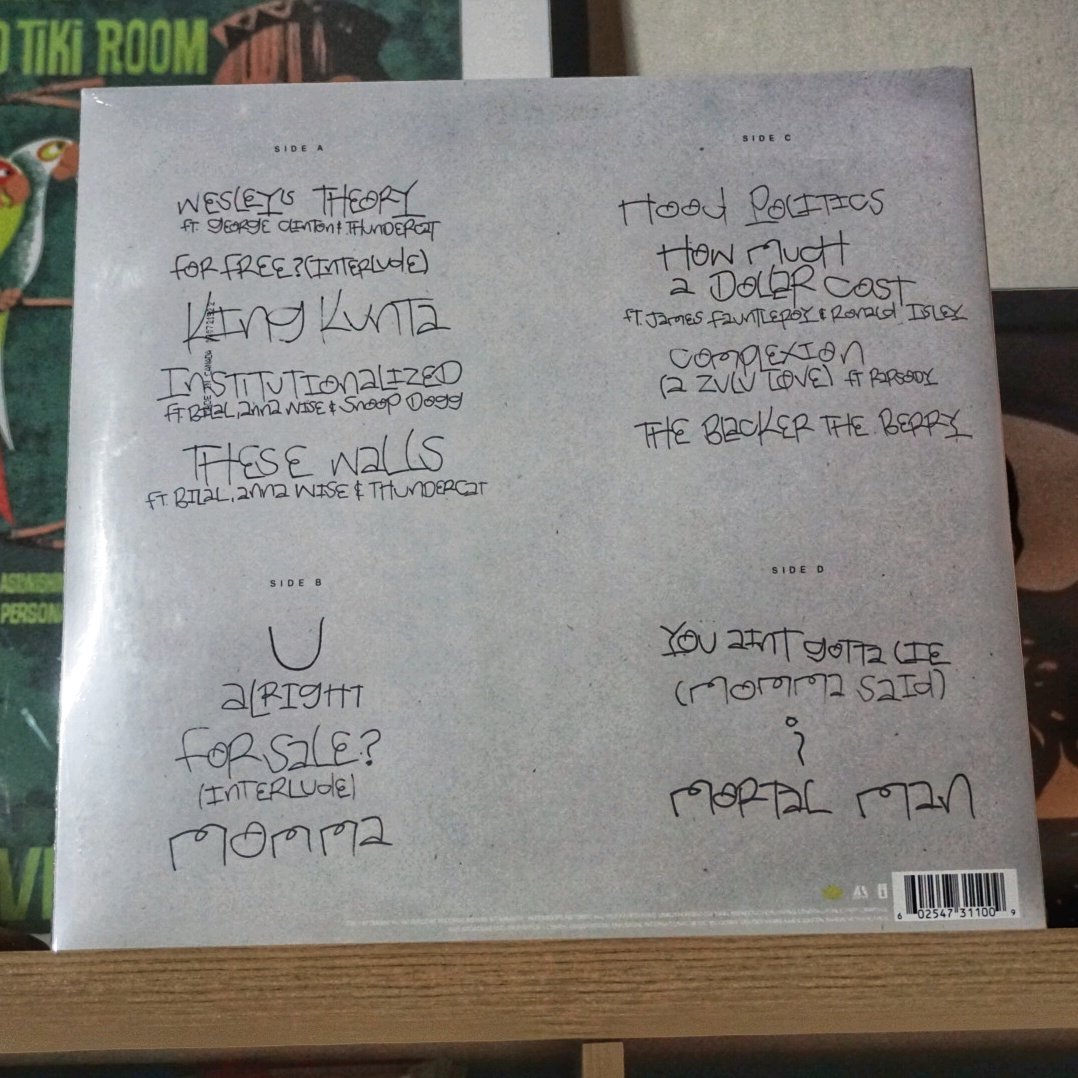 TIKI ROOM
SIDE A
WESLEY'S THEORY
FT. GEORGE CLINTON & THUNDERCAT
FOR FREE? (INTERLUDE)
KING KUNTA
INSTITUTIONALIZED
FT BILAL, ANNA WISE & SNOOP DOGG
THESE WALLS
FT. BILAL, ANNA WISE & THUNDERCAT
SIDE B
U
ALRIGHT
FOR SALE?
(INTERLUDE)
MOMMA
SIDE C
HOOD POLITICS
HOW MUCH
A DOLLAR COST
FT. JAMES FAUNTLEROY & RONALD ISLEY
COMPLEXION
(A ZULU LOVE) FT RAPSODY
THE BLACKER THE BERRY
SIDE D
YOU AINT GOTTA LIE
(MOMMA SAID)
i
MORTAL MAN
6 02547 31100 9
PERSON